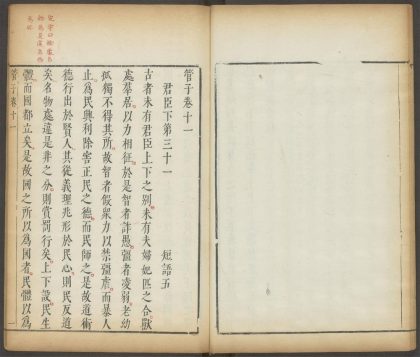 管子卷十一
君臣下第三十一 短語五
古者未有君臣上下之別未有夫婦妃匹之合獸
處羣居以力相征於是智者詐愚彊者凌弱老幼
孤獨不得其所故智者假衆力以禁彊虐而暴人
止爲民興利除害正民之德而民師之是故道術
德行出於賢人其從義理兆形於民心則民反道
矣名物處違是非之分則賞罰行矣上下設民生
體而國都立矣是故國之所以爲國者民體以爲
管子卷十一
一